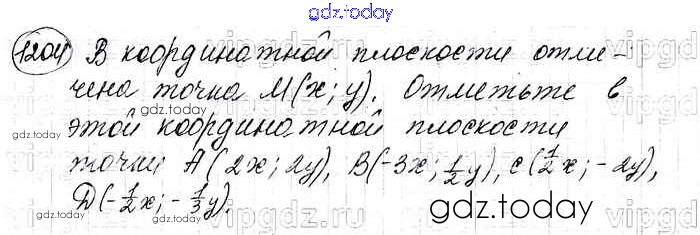 gdz.today
1204 В координатной плоскости отме-
чена точка M(x; y). Отметьте в
этой координатной плоскости
точки A(2x; 2y), B(-3x; 1/2y), C(1/2x; -2y),
D(-1/2x; -1/3y).
gdz.today
gdz.today
gdz.today
gdz.today
vipgdz.ru